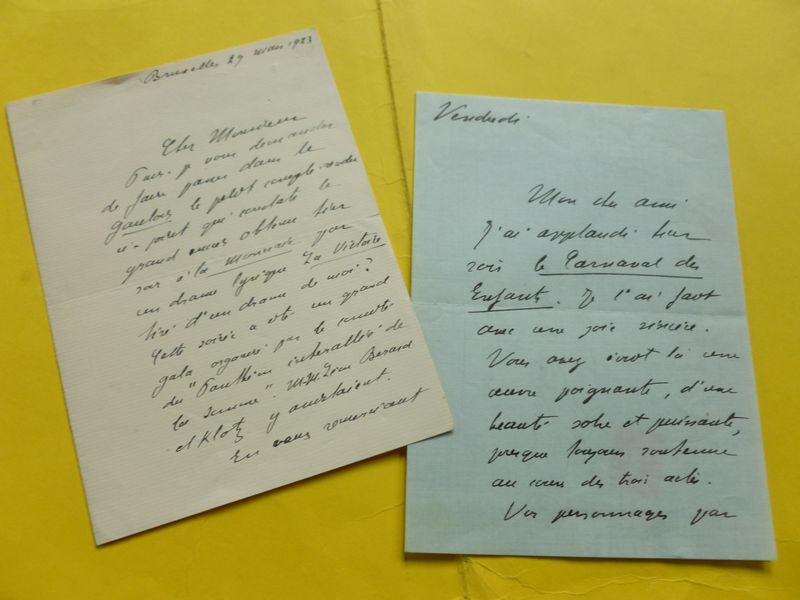 Bruxelles 29 mars 1923
Cher Monsieur
Puis-je vous demander
de faire passer dans le
Gaulois le petit compte-rendu
ci-joint qui constate le
grand succès obtenu hier
soir à la Monnaie par
un drame lyrique La Victoire
tiré d'un drame de moi?
Cette soirée a été un grand
gala organisé par le comité
du "Panthéon interallié de
la Somme". M.M. Léon Bérard
et Klotz y assistaient.
En vous remerciant
Vendredi
Mon cher ami
J'ai applaudi hier
soir le Carnaval des
Enfants. Je l'ai fait
avec une joie sincère.
Vous avez écrit là une
œuvre poignante, d'une
beauté sobre et puissante,
presque toujours soutenue
au cours des trois actes.
Vos personnages par